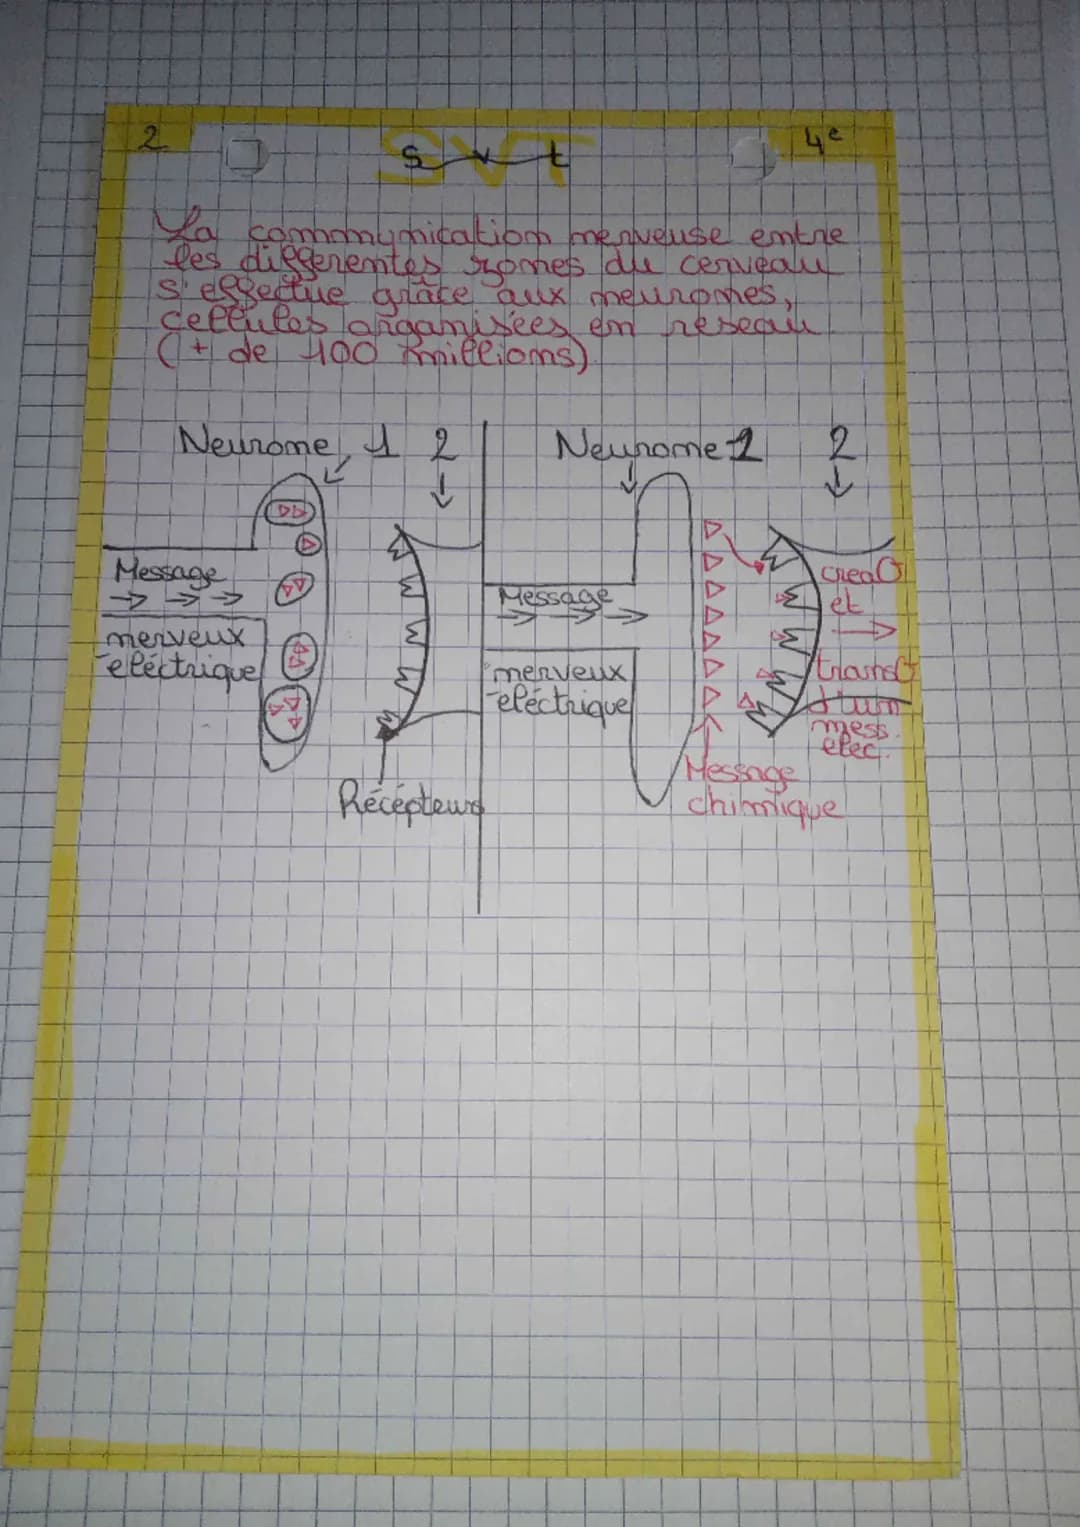 2
SVT
s v t
4e
La communication nerveuse entre
les différentes zones du cerveau
s'effectue grâce aux neurones,
cellules organisées en réseau
(+ de 100 millions)
Neurone 1 2
Message
nerveux
électrique
Récépteurs
Neurone 1 2
Message
nerveux
électrique
Message
chimique
crea°
et
trans°
d'un
mess.
elec.